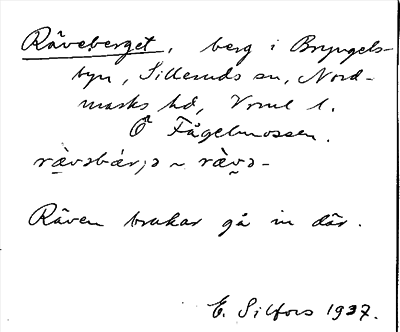 Räveberget, berg i Bryngels-
byn, Silleruds sn, Nord-
marks hd, Vrml l.
Ö Fågelmossen.
rævəbær;ə ~ rævə-
Räven brukar gå in där.
E. Silfors 1937.